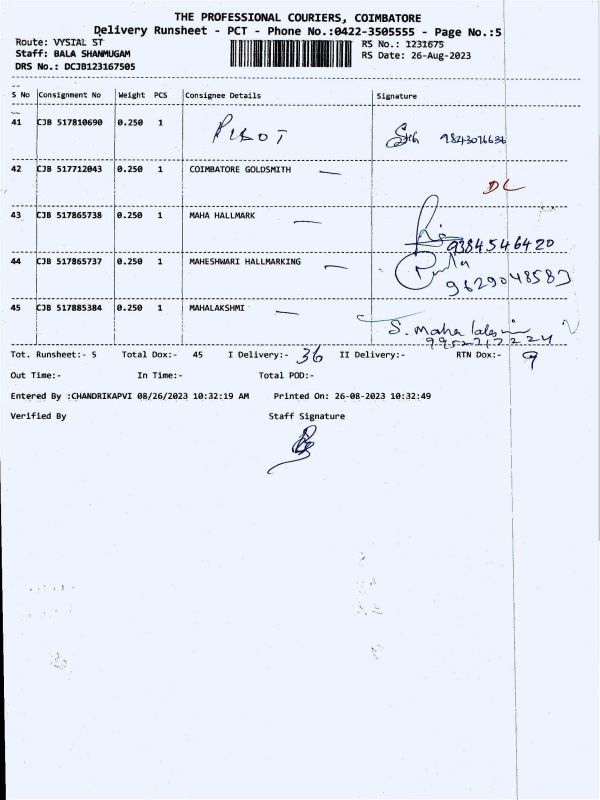 THE PROFESSIONAL COURIERS, COIMBATORE
Delivery Runsheet - PCT - Phone No.:0422-3505555 - Page No.:5
Route: VYSIAL ST RS No.: 1231675
Staff: BALA SHANMUGAM RS Date: 26-Aug-2023
DRS No.: DCJB123167505
S No Consignment No Weight PCS Consignee Details Signature
41 CJB 517810690 0.250 1
42 CJB 517712043 0.250 1 COIMBATORE GOLDSMITH —
DL
43 CJB 517865738 0.250 1 MAHA HALLMARK —
9384546420
44 CJB 517865737 0.250 1 MAHESHWARI HALLMARKING —
45 CJB 517885384 0.250 1 MAHALAKSHMI —
Tot. Runsheet:- 5 Total Dox:- 45 I Delivery:- 36 II Delivery:- RTN Dox:- 9
Out Time:- In Time:- Total POD:-
Entered By :CHANDRIKAPVI 08/26/2023 10:32:19 AM Printed On: 26-08-2023 10:32:49
Verified By Staff Signature